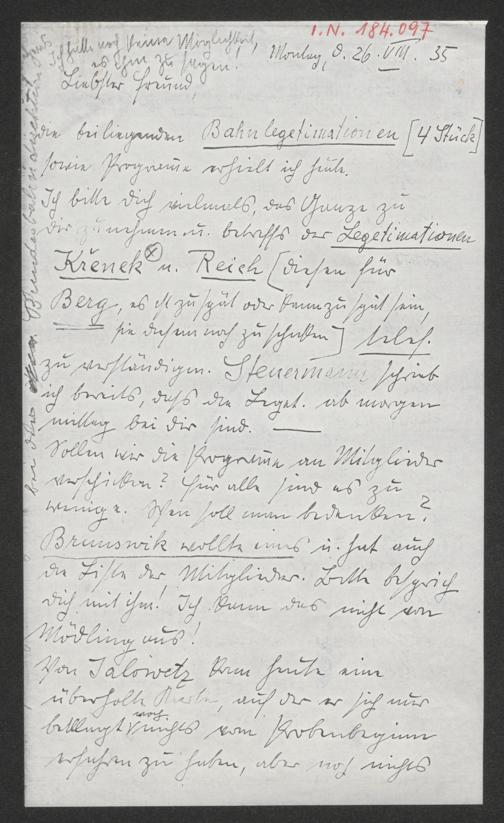 I.N. 184.097
Ich hatte noch keine Möglichkeit,
es ihm zu sagen!
Montag, d. 26. VIII. 35
Liebster Freund,
die beiliegenden Bahnlegetimationen [4 Stück]
sowie Programme erhielt ich heute.
Ich bitte Dich vielmals, das Ganze zu
Dir zu nehmen u. betreffs der Legetimationen
Křenek ⊗ u. Reich [diesen für
Berg, es ist zu spät oder kann zu spät sein,
sie diesem noch zu schicken] telef.
zu verständigen. Steuermann schrieb
ich bereits, dass die Leget. ab morgen
mittag bei Dir sind. —
Sollen wir die Programme an Mitglieder
verschicken? Für alle sind es zu
wenige. Wen soll man bedenken?
Brunswik wollte eines u. hat auch
die Liste der Mitglieder. Bitte besprich
Dich mit ihm! Ich kann das nicht von
Mödling aus!
Von Jalowetz kam heute eine
überholte Karte, auf der er sich nur
beklagt noch nichts vom Probenbeginn
erfahren zu haben, aber noch nichts
bei der Bundesbahndirektion